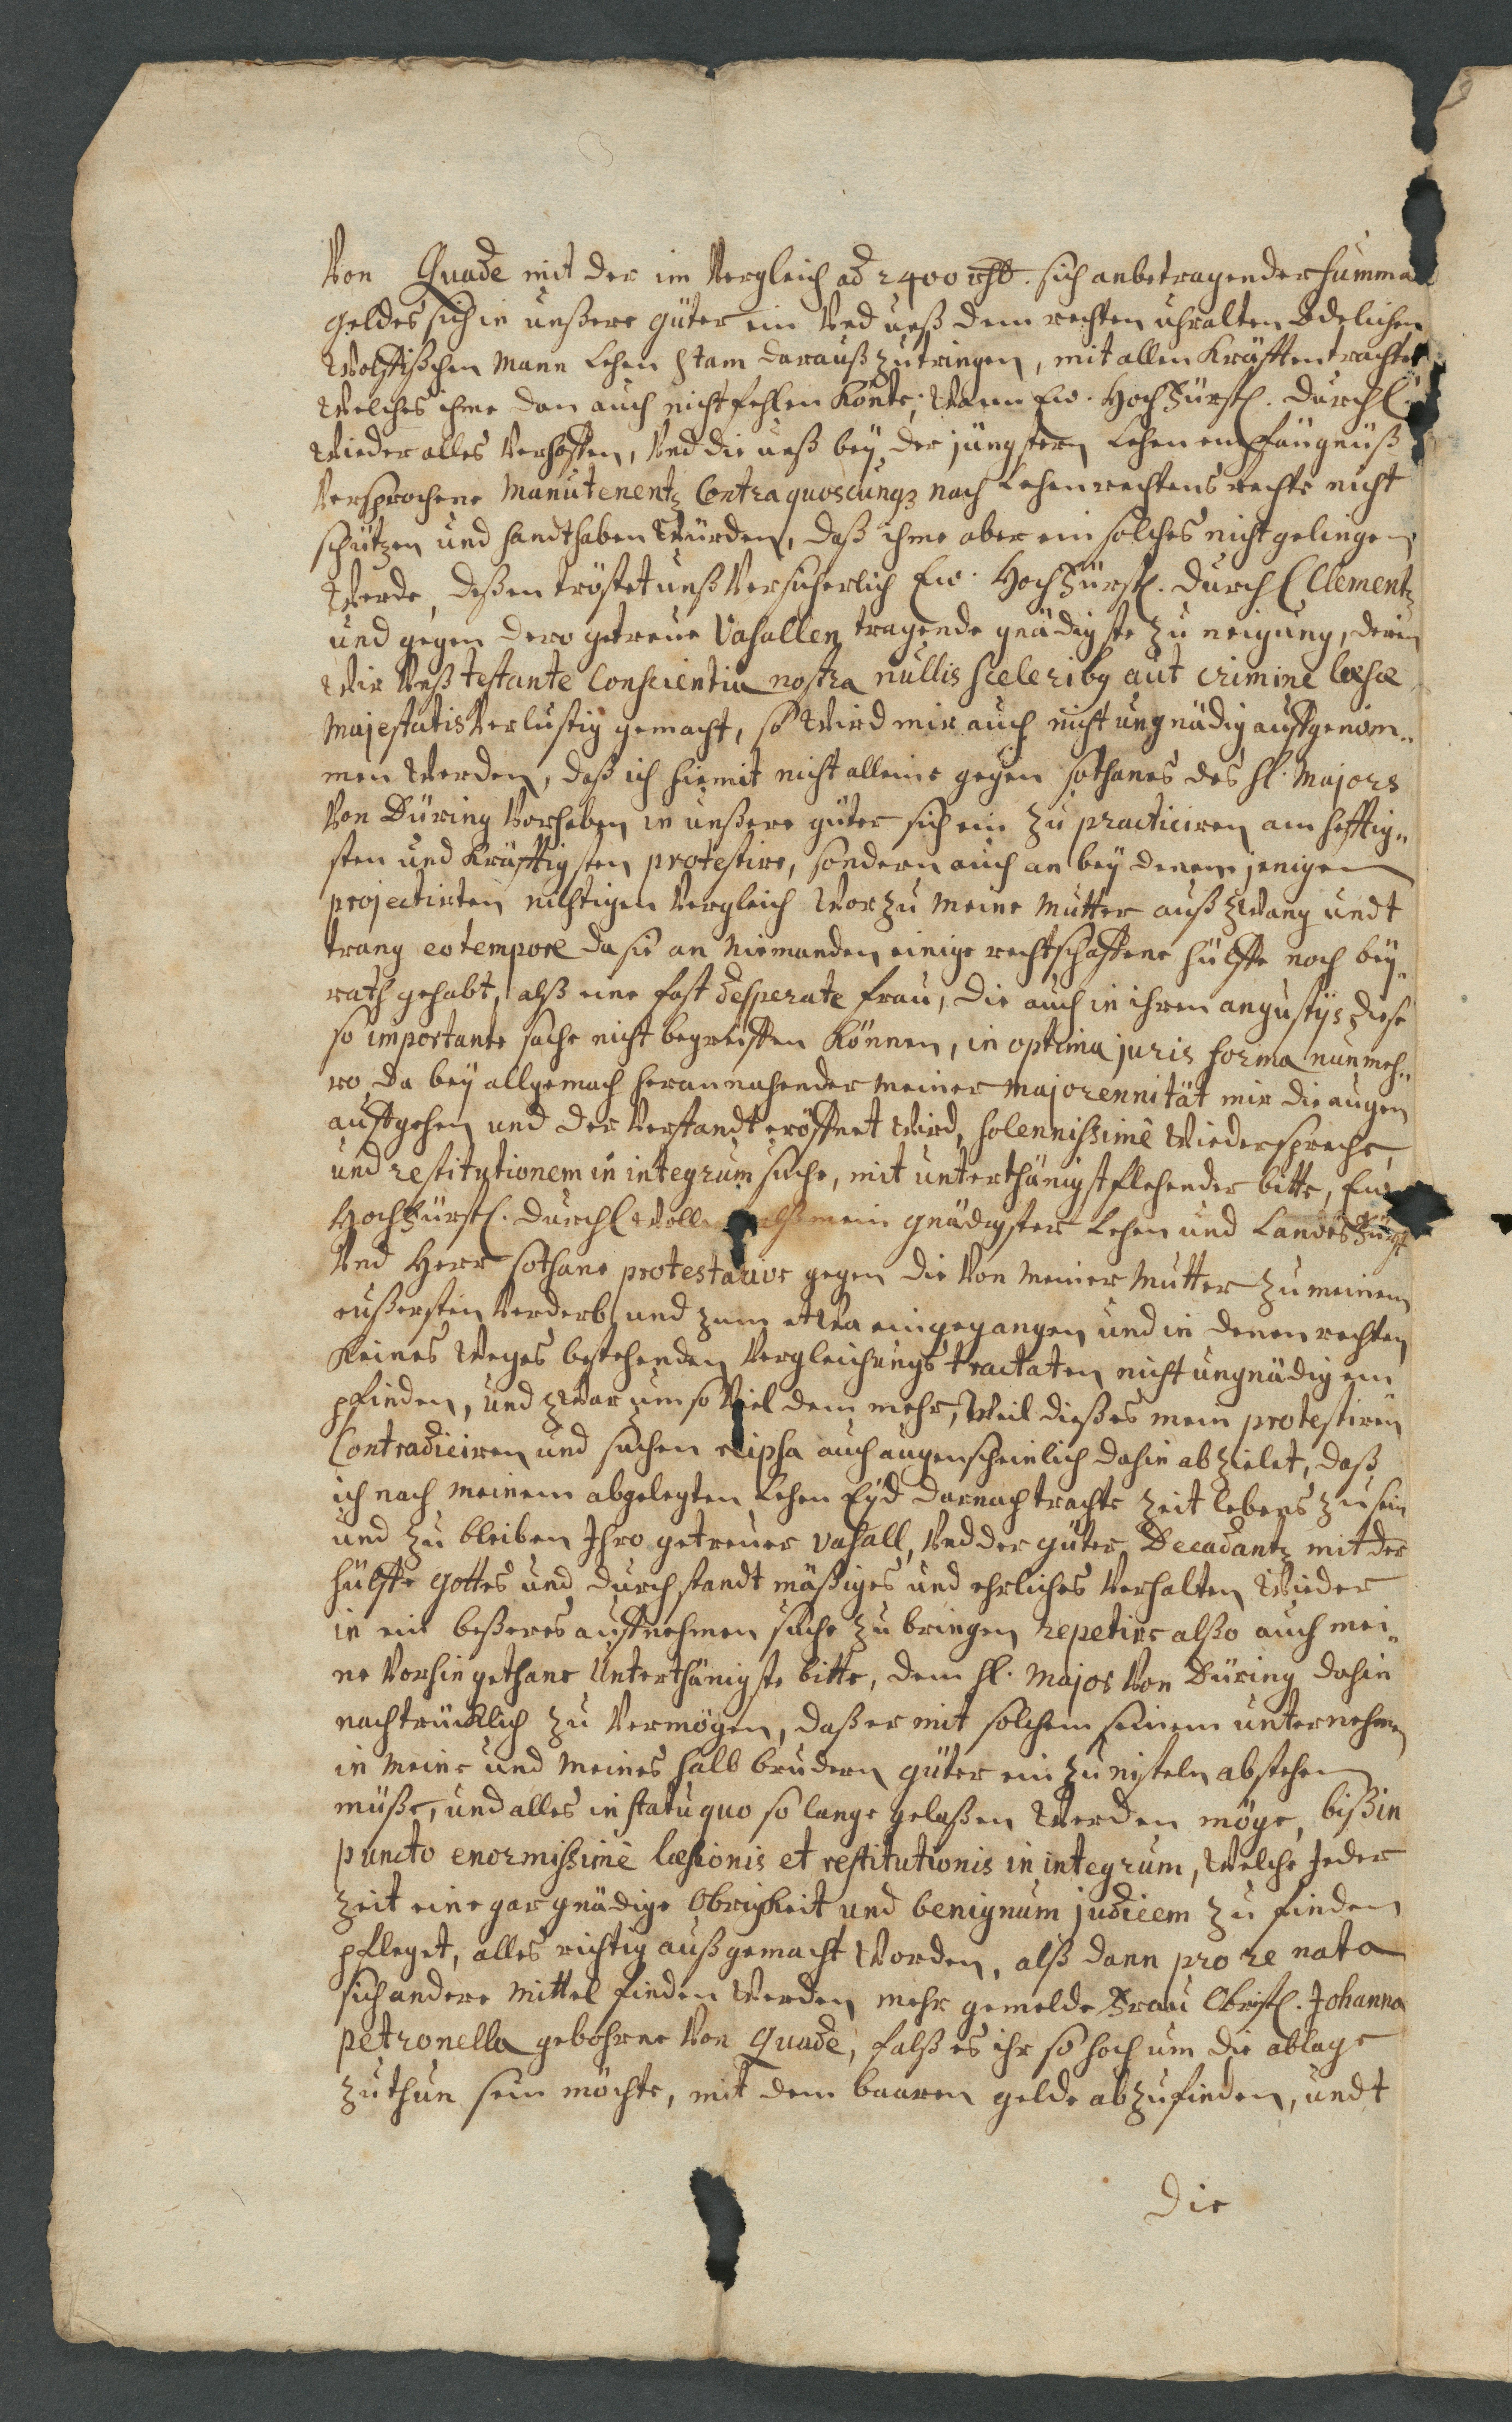 Von Quade mit der im Vergleich ad 2400 rthl. sich anbetragender summa
geldes sich in unßere güter ein Und unß dem rechten uhralten Adelichen
Wolffischen Mann Lehen Stam darauß zu tringen, mit allen Kräfften trachtet
Welches ihme dan auch nicht fehlen Könte; Wann Ew. HochFürstl. Durchl.
Wieder alles Verhoffen, Und die unß bey der jüngstern Lehen empfängnüß
Versprochene Manutenentz Contra quoscunqz nach Lehenrechtens rechte nicht
schützen und handthaben Würden, daß ihme aber ein solches nicht gelingen
Werde, deßen tröstet unß Versicherlich Ew. HochFürstl. Durchl Clementz
und gegen dero getreue Vasallen tragende gnädigste Zuneigung, deren
Wir Unß testante Conscientia nostra nullis sceleribg aut crimine læsæ
Majestatis Verlustig gemacht, so Wird mir auch nicht ungnädig auffgenom„
men Werden, daß ich hiemit nicht alleine gegen sothanes des H. Majors
Von Düring Vorhaben in unßere güter sich ein zu practiciren am hefftig„
sten und Kräfftigsten protestire, sondern auch an bey denem jenigen
projectirten nichtigen Vergleich Worzu Meine Mutter auß Zwang undt
trang eo tempore da sie an Niemanden einige rechtschaffene hülffe noch bey„
rath gehabt, alß eine fast desperate frau, die auch in ihren angustijs diese
so importante sache nicht begreiffen Können, in optima juris forma nunmeh„
ro da bey allgemach herannahender Meiner Majorennität mir die augen
auffgehen und der Verstandt eröffnet Wird, solennissimè Wiederspreche,
und restitutionem in integrum suche, mit unterthänigst flehender bitte, Ew.
HochFürstl. Durchl Wolle alß mein gnädigster Lehen und Landes Fürst
Und Herr sothane protestation gegen die Von Meiner Mutter zu meinem
eußersten Verderb und zum eingegangen und in denen rechten
Keines Weges bestehenden Vergleichungs tractaten nicht ungnädig em
pfinden, und zwar um so Viel dem mehr, Weil dießes mein protestiren
Contradiciren und suchen re ipsa auch augenscheinlich dahin abzielet, daß
ich nach meinem abgelegten Lehen Eyd darnach trachte Zeit Lebens zu sein
und zu bleiben Ihro getreuer Vasall, Und der güter Decadantz mit der
hülffe Gottes und durch standt mäßiges und ehrliches Verhalten Wieder
in ein beßeres auffnehmen suche zu bringen, repetire alßo auch mei„
ne Vorhin gethane Unterthänigste bitte, dem H. Major Von Düring dahin
nachtrücklich zu Vermögen, daß er mit solchem seinem unternehmen
in Meine und Meines halb brudern güter ein zu nisteln abstehen
müße, und alles in statu quo so lange gelaßen Werden möge, biß in
puncto enormissimè læsionis et restitutionis in integrum, Welche Jeder
Zeit eine gar gnädige Obrigkeit und benignum judicem zu finden
pfleget, alles richtig außgemacht Worden, alß dann pro re nata
sich andere Mittel finden Werden mehr gemelde Frau Obristl. Johanna
Petronella gebohrne Von Quade, falß es ihr so hoch um die ablage
zuthun sein möchte, mit dem baaren gelde abzufinden, undt
die